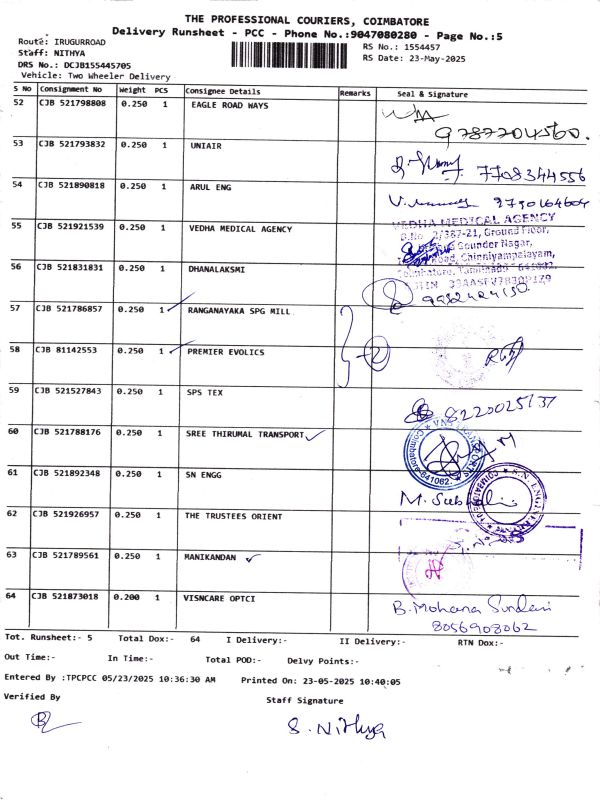 THE PROFESSIONAL COURIERS, COIMBATORE
Delivery Runsheet - PCC - Phone No.:9047080280 - Page No.:5
Route: IRUGURROAD
Staff: NITHYA
DRS No.: DCJB155445705
Vehicle: Two Wheeler Delivery
RS No.: 1554457
RS Date: 23-May-2025
S No Consignment No Weight PCS Consignee Details Remarks Seal & Signature
52 CJB 521798808 0.250 1 EAGLE ROAD WAYS
9787204560.
53 CJB 521793832 0.250 1 UNIAIR
7708344556
54 CJB 521890818 0.250 1 ARUL ENG
9790164604
55 CJB 521921539 0.250 1 VEDHA MEDICAL AGENCY
VEDHA MEDICAL AGENCY
2/387-21, Ground Floor,
Gounder Nagar,
Road, Chinniyampalayam,
Coimbatore, Tamilnadu
56 CJB 521831831 0.250 1 DHANALAKSMI
57 CJB 521786857 0.250 1 RANGANAYAKA SPG MILL
58 CJB 81142553 0.250 1 PREMIER EVOLICS
2
59 CJB 521527843 0.250 1 SPS TEX
8220025137
60 CJB 521788176 0.250 1 SREE THIRUMAL TRANSPORT
61 CJB 521892348 0.250 1 SN ENGG
62 CJB 521926957 0.250 1 THE TRUSTEES ORIENT
63 CJB 521789561 0.250 1 MANIKANDAN
64 CJB 521873018 0.200 1 VISNCARE OPTCI
B. Mohana Sundari
8056908062
Tot. Runsheet:- 5 Total Dox:- 64 I Delivery:- II Delivery:- RTN Dox:-
Out Time:- In Time:- Total POD:- Delvy Points:-
Entered By :TPCPCC 05/23/2025 10:36:30 AM Printed On: 23-05-2025 10:40:05
Verified By Staff Signature
S. Nithya